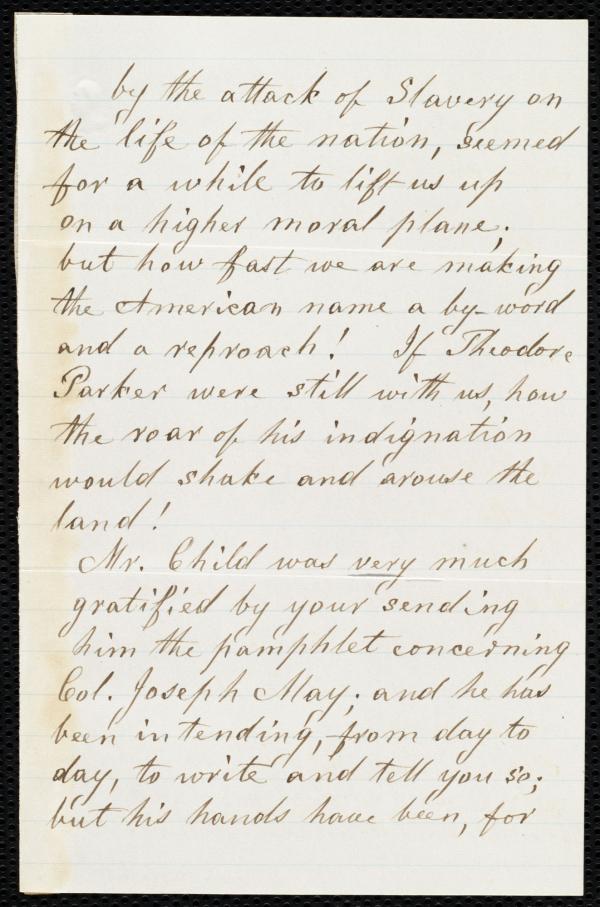 by the attack of Slavery on
the life of the nation, seemed
for a while to lift us up
on a higher moral plane;
but how fast we are making
the American name a by-word
and a reproach! If Theodore
Parker were still with us, how
the roar of his indignation
would shake and arouse the
land!
Mr. Child was very much
gratified by your sending
him the pamphlet concerning
Col. Joseph May; and he has
been intending, from day to
day, to write and tell you so;
but his hands have been, for